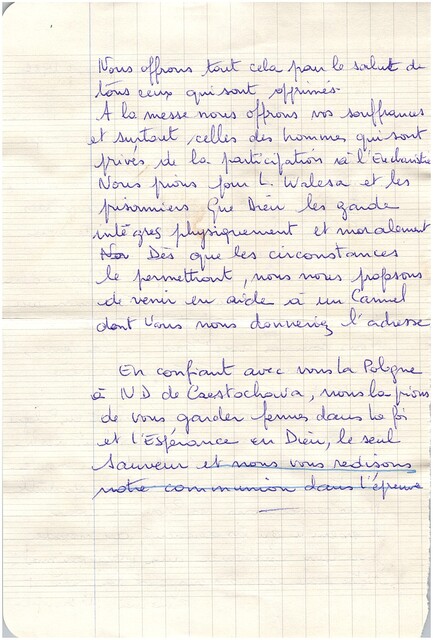 Nous offrons tout cela pour le salut de
tous ceux qui sont opprimés.
A la messe nous offrons vos souffrances
et surtout celles des hommes qui sont
privés de la participation à l'Eucharistie
Nous prions pour L. Walesa et les
prisonniers Que Dieu les garde
intègres physiquement et moralement
Nou Dès que les circonstances
le permettront, nous nous proposons
de venir en aide à un Carmel
dont vous nous donneriez l'adresse
En confiant avec vous la Pologne
à N D de Czestochowa, nous la prions
de vous garder fermes dans la foi
et l'Espérance en Dieu, le seul
Sauveur et nous vous redisons
notre communion dans l'épreuve